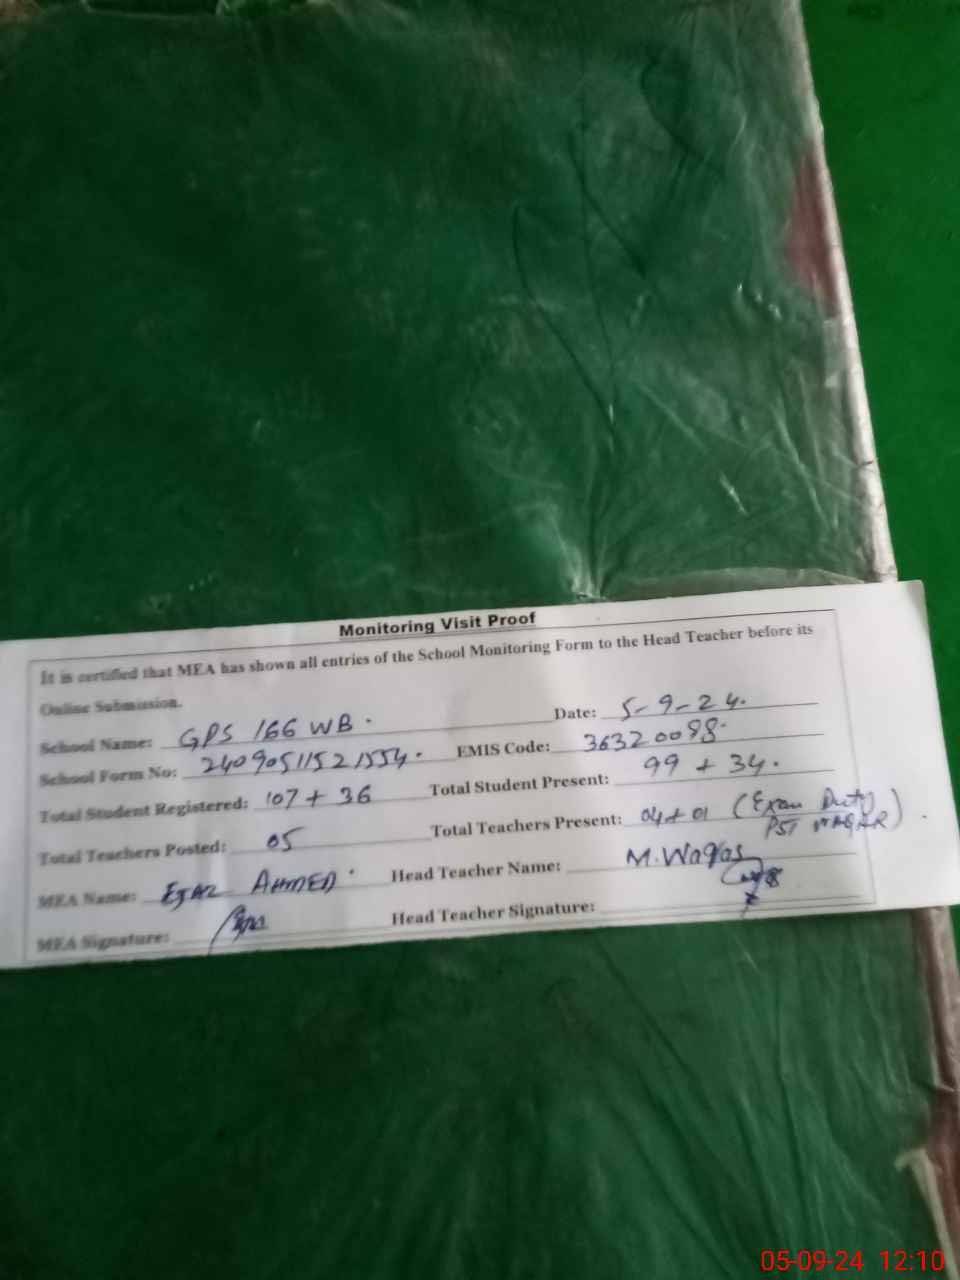 Monitoring Visit Proof
It is certified that MEA has shown all entries of the School Monitoring Form to the Head Teacher before its
Online Submission.
School Name: GPS 166 WB. Date: 5-9-24.
School Form No: 2409051152 1554. EMIS Code: 36320098.
Total Student Registered: 107 + 36 Total Student Present: 99 + 34.
Total Teachers Posted: 05 Total Teachers Present: 04 + 01 (Exam Duty
PST
MEA Name: EJAZ AHMED. Head Teacher Name: M. Waqas
MEA Signature: Head Teacher Signature:
05-09-24 12:10